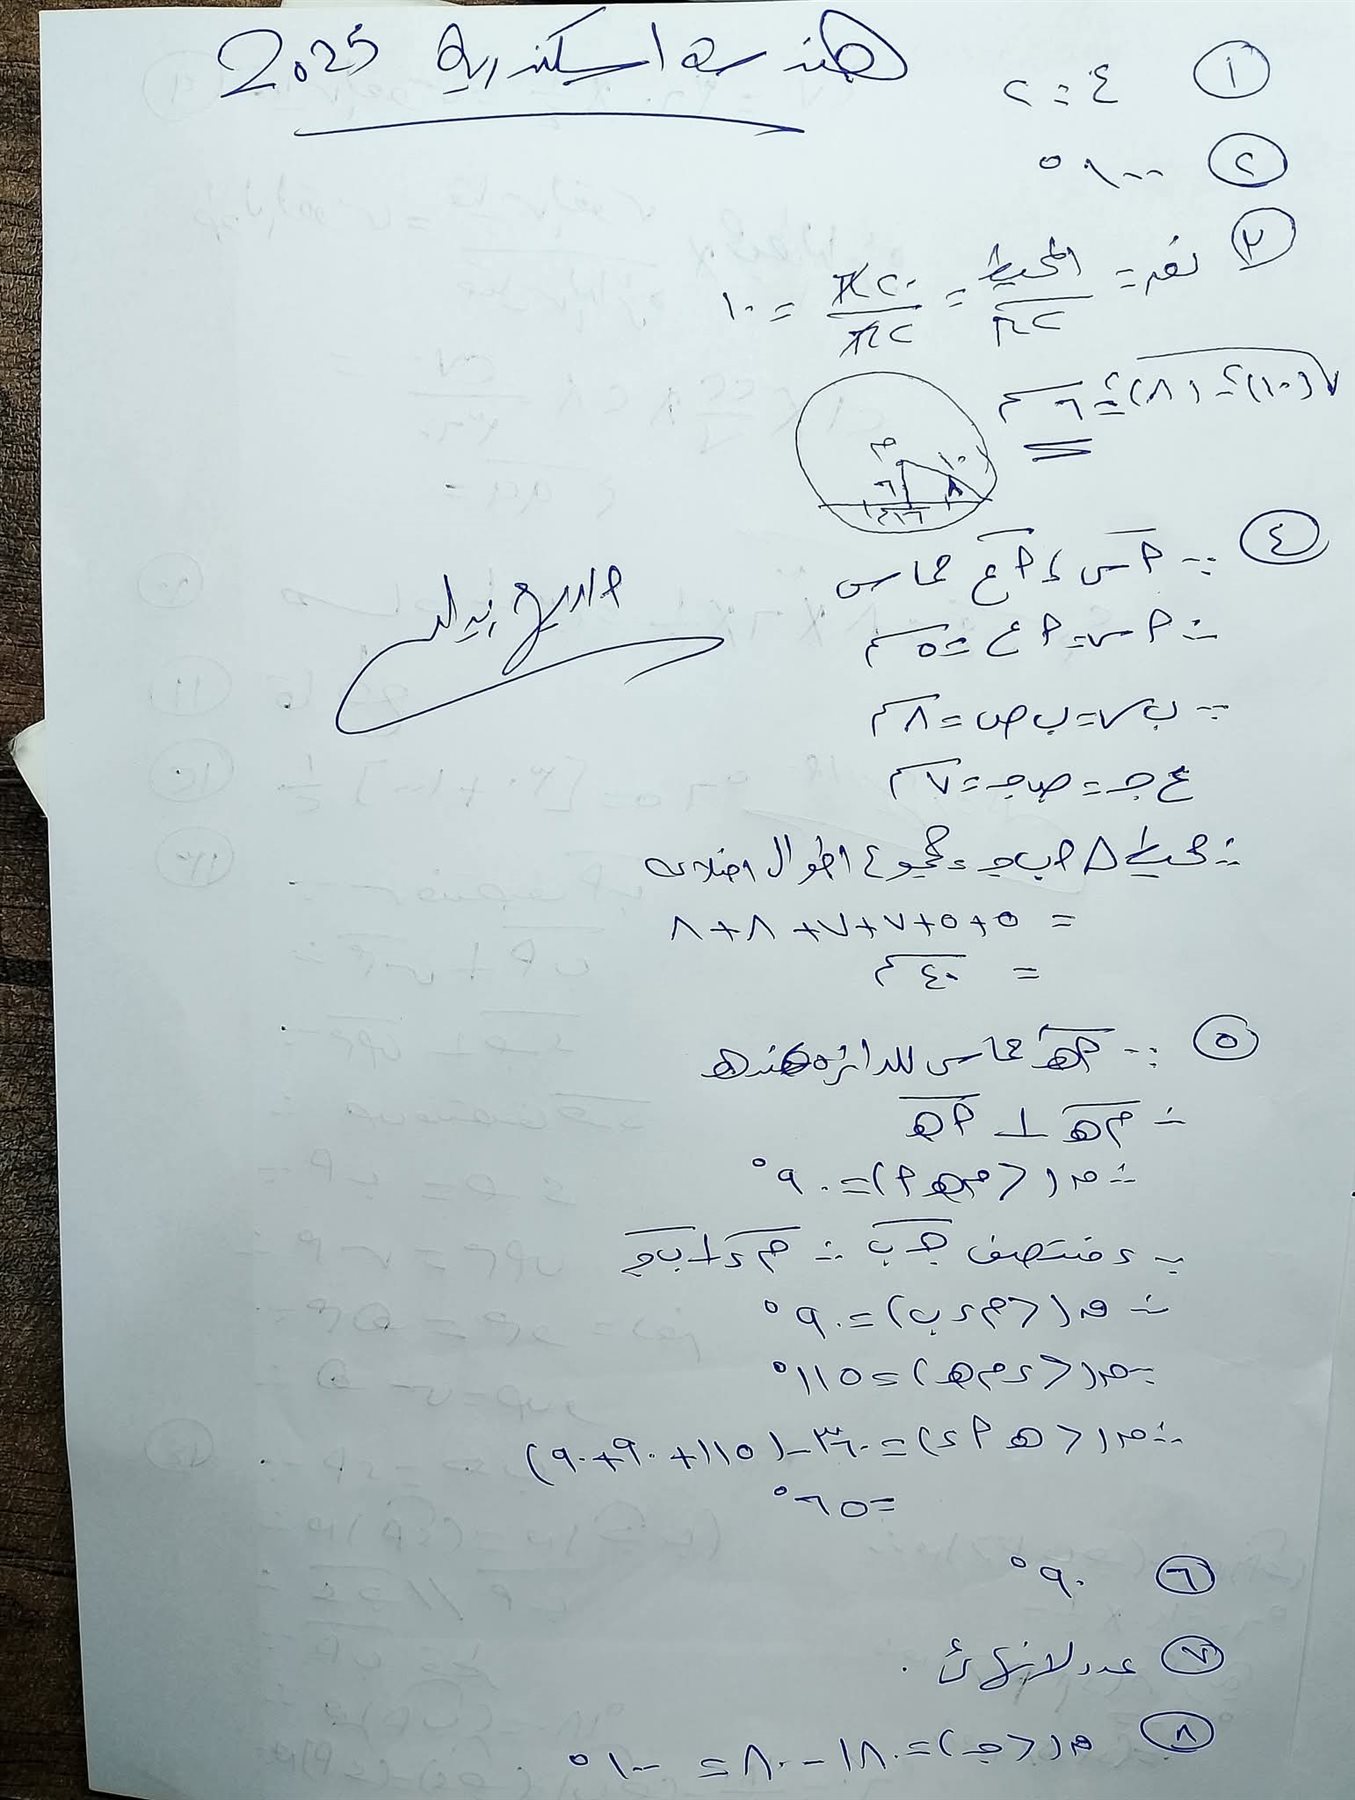 هندسة اسكندرية 2025
① ٤ : ٢
② ١٠٠°
③ نق = المحيط / ٢π = ٢٠π / ٢π = ١٠
√(١٠)² - (٨)² = ٦ سم
م ١٠ ٦ ٨
④ ∵ أس ، أع مماس
∴ أس = أع = ٥ سم
∵ ب س = ب ص = ٨ سم
ع جـ = ص جـ = ٧ سم
∴ محيط △ أ ب جـ = مجموع أطوال أضلاعه
= ٥ + ٥ + ٧ + ٧ + ٨ + ٨
= ٤٠ سم
⑤ ∵ أهـ مماس للدائرة عند هـ
∴ م هـ ⊥ أ هـ
∴ ق(< م هـ أ) = ٩٠°
∵ د منتصف جـ ب ∴ م د ⊥ ب جـ
∴ ق(< م د ب) = ٩٠°
∵ ق(< د م هـ) = ١١٥°
∴ ق(< هـ أ د) = ٣٦٠ - (١١٥ + ٩٠ + ٩٠)
= ٦٥°
⑥ ٩٠°
⑦ عدد لا نهائي .
⑧ ق(< جـ) = ١٨٠ - ٨٠ = ١٠٠°